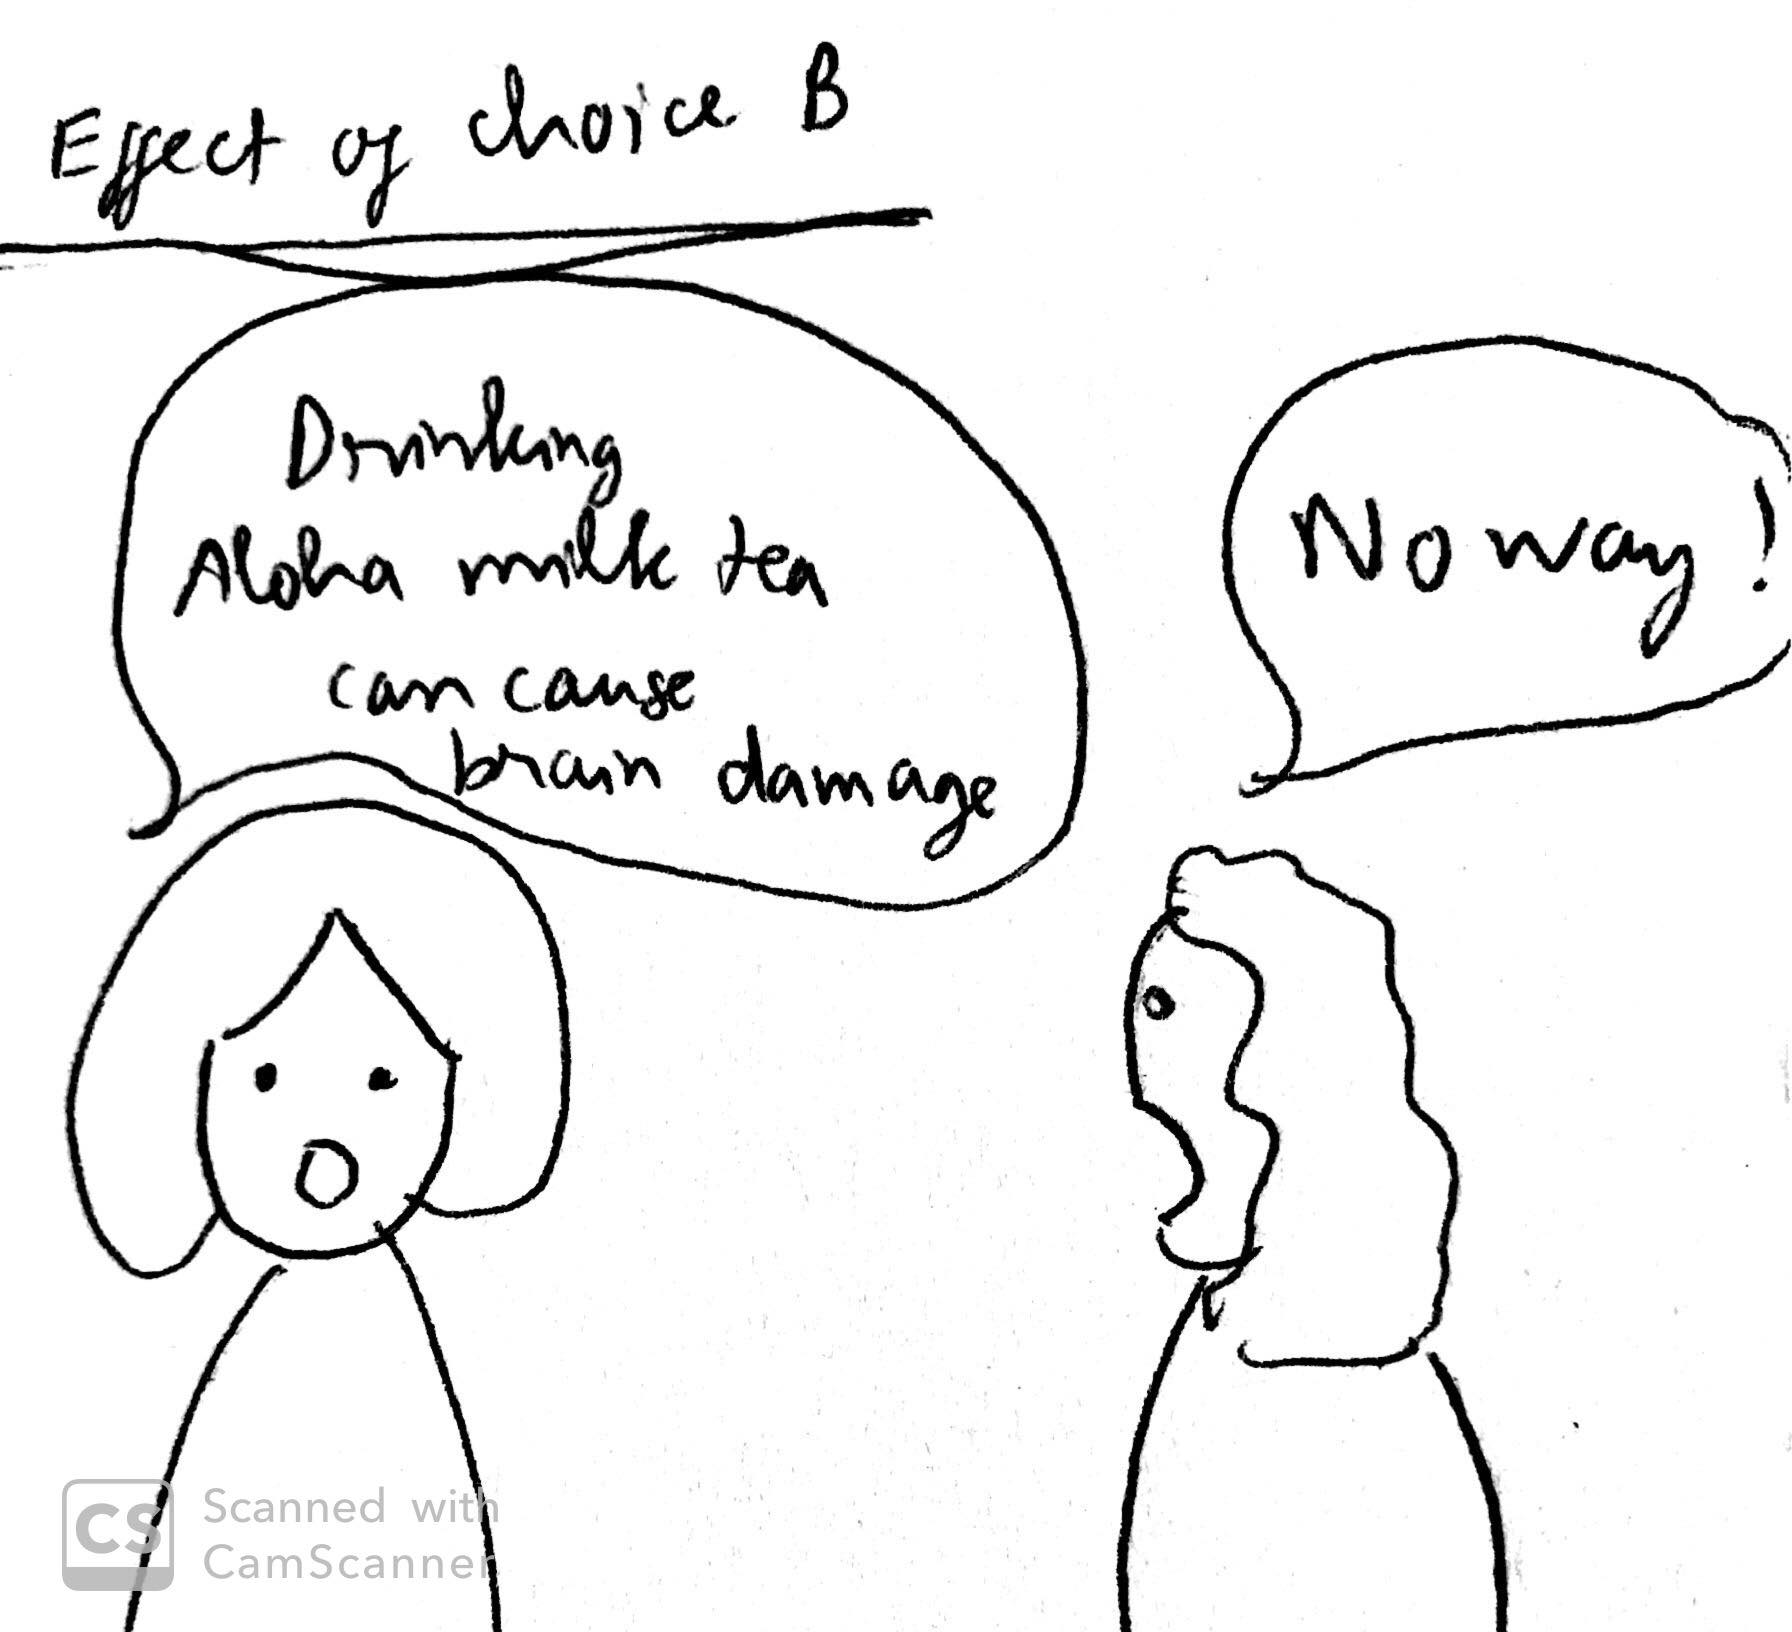 Effect of choice B
Drinking
Aloha milk tea
can cause
brain damage
No way!
CS
Scanned with
CamScanner